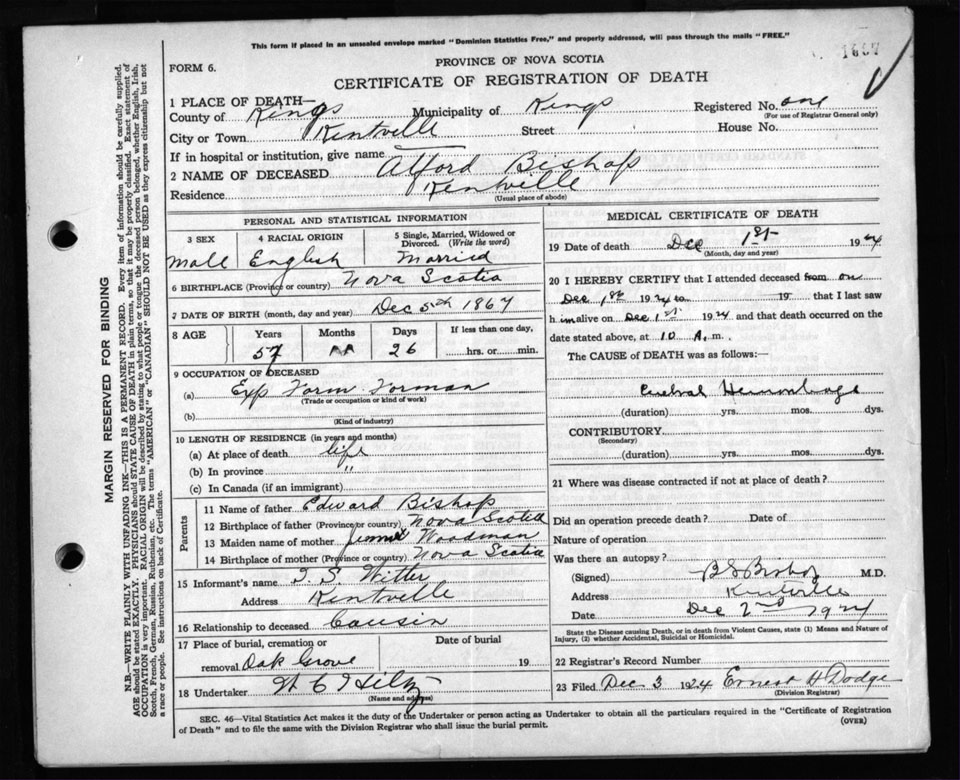 This form if placed in an unsealed envelope marked "Dominion Statistics Free," and properly addressed, will pass through the mails "FREE."
1667
FORM 6.
PROVINCE OF NOVA SCOTIA
CERTIFICATE OF REGISTRATION OF DEATH
1 PLACE OF DEATH—
County of Kings Municipality of Kings Registered No. one
(For use of Registrar General only)
City or Town Kentville Street House No.
If in hospital or institution, give name
2 NAME OF DECEASED Alford Bishop
Residence Kentville
(Usual place of abode)
PERSONAL AND STATISTICAL INFORMATION
3 SEX 4 RACIAL ORIGIN 5 Single, Married, Widowed or Divorced. (Write the word)
Male English Married
6 BIRTHPLACE (Province or country) Nova Scotia
7 DATE OF BIRTH (month, day and year) Dec 5th 1867
8 AGE Years Months Days If less than one day,
57 26 hrs. or min.
9 OCCUPATION OF DECEASED
(a) Exp Farm Forman
(Trade or occupation or kind of work)
(b)
(Kind of industry)
10 LENGTH OF RESIDENCE (in years and months)
(a) At place of death life
(b) In province "
(c) In Canada (if an immigrant)
Parents
11 Name of father Edward Bishop
12 Birthplace of father (Province or country) Nova Scotia
13 Maiden name of mother Woodman
14 Birthplace of mother (Province or country) Nova Scotia
15 Informant's name I. S. Witter
Address Kentville
16 Relationship to deceased Causin
17 Place of burial, cremation or Date of burial
removal Oak Grove 19
18 Undertaker W C Hiltz
(Name and address)
MEDICAL CERTIFICATE OF DEATH
19 Date of death Dec 1st 1924
(Month, day and year)
20 I HEREBY CERTIFY that I attended deceased from on
Dec 1st 1924 to 19 that I last saw
him alive on Dec 1st 1924 and that death occurred on the
date stated above, at 10 A. m.
The CAUSE OF DEATH was as follows:—
Cerebral Hemorrhage
(duration) yrs. mos. dys.
CONTRIBUTORY
(Secondary)
(duration) yrs. mos. dys.
21 Where was disease contracted if not at place of death?
Did an operation precede death? Date of
Nature of operation
Was there an autopsy?
(Signed) B S Bishop M.D.
Address Kentville
Date Dec 2nd 1924
State the Disease causing Death, or in death from Violent Causes, state (1) Means and Nature of
Injury, (2) whether Accidental, Suicidal or Homicidal.
22 Registrar's Record Number
23 Filed Dec 3 1924 Ernest H Dodge
(Division Registrar)
SEC. 46—Vital Statistics Act makes it the duty of the Undertaker or person acting as Undertaker to obtain all the particulars required in the "Certificate of Registration
of Death" and to file the same with the Division Registrar who shall issue the burial permit.
(OVER)
MARGIN RESERVED FOR BINDING
N.B.—WRITE PLAINLY WITH UNFADING INK—THIS IS A PERMANENT RECORD. Every item of information should be carefully supplied.
AGE should be stated EXACTLY. PHYSICIANS should STATE CAUSE OF DEATH in plain terms, so that it may be properly classified. Exact statement of
OCCUPATION is very important. RACIAL ORIGIN will be described by stating to what people or tongue the deceased person belonged, whether English, Irish,
Scotch, French, German, Russian, Ruthenian, etc. The terms "AMERICAN" or "CANADIAN" SHOULD NOT BE USED as they express citizenship but not
a race or people. See instructions on back of Certificate.